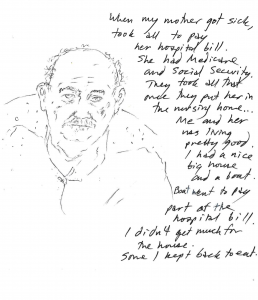 When my mother got sick,
took all to pay
her hospital bill.
She had Medicare
and Social Security.
They took all that
once they put her in
the nursing home...
Me and her
was living
pretty good.
I had a nice
big house
and a boat.
Boat went to pay
part of the
hospital bill.
I didn't get much for
the house.
Some I kept back to eat.